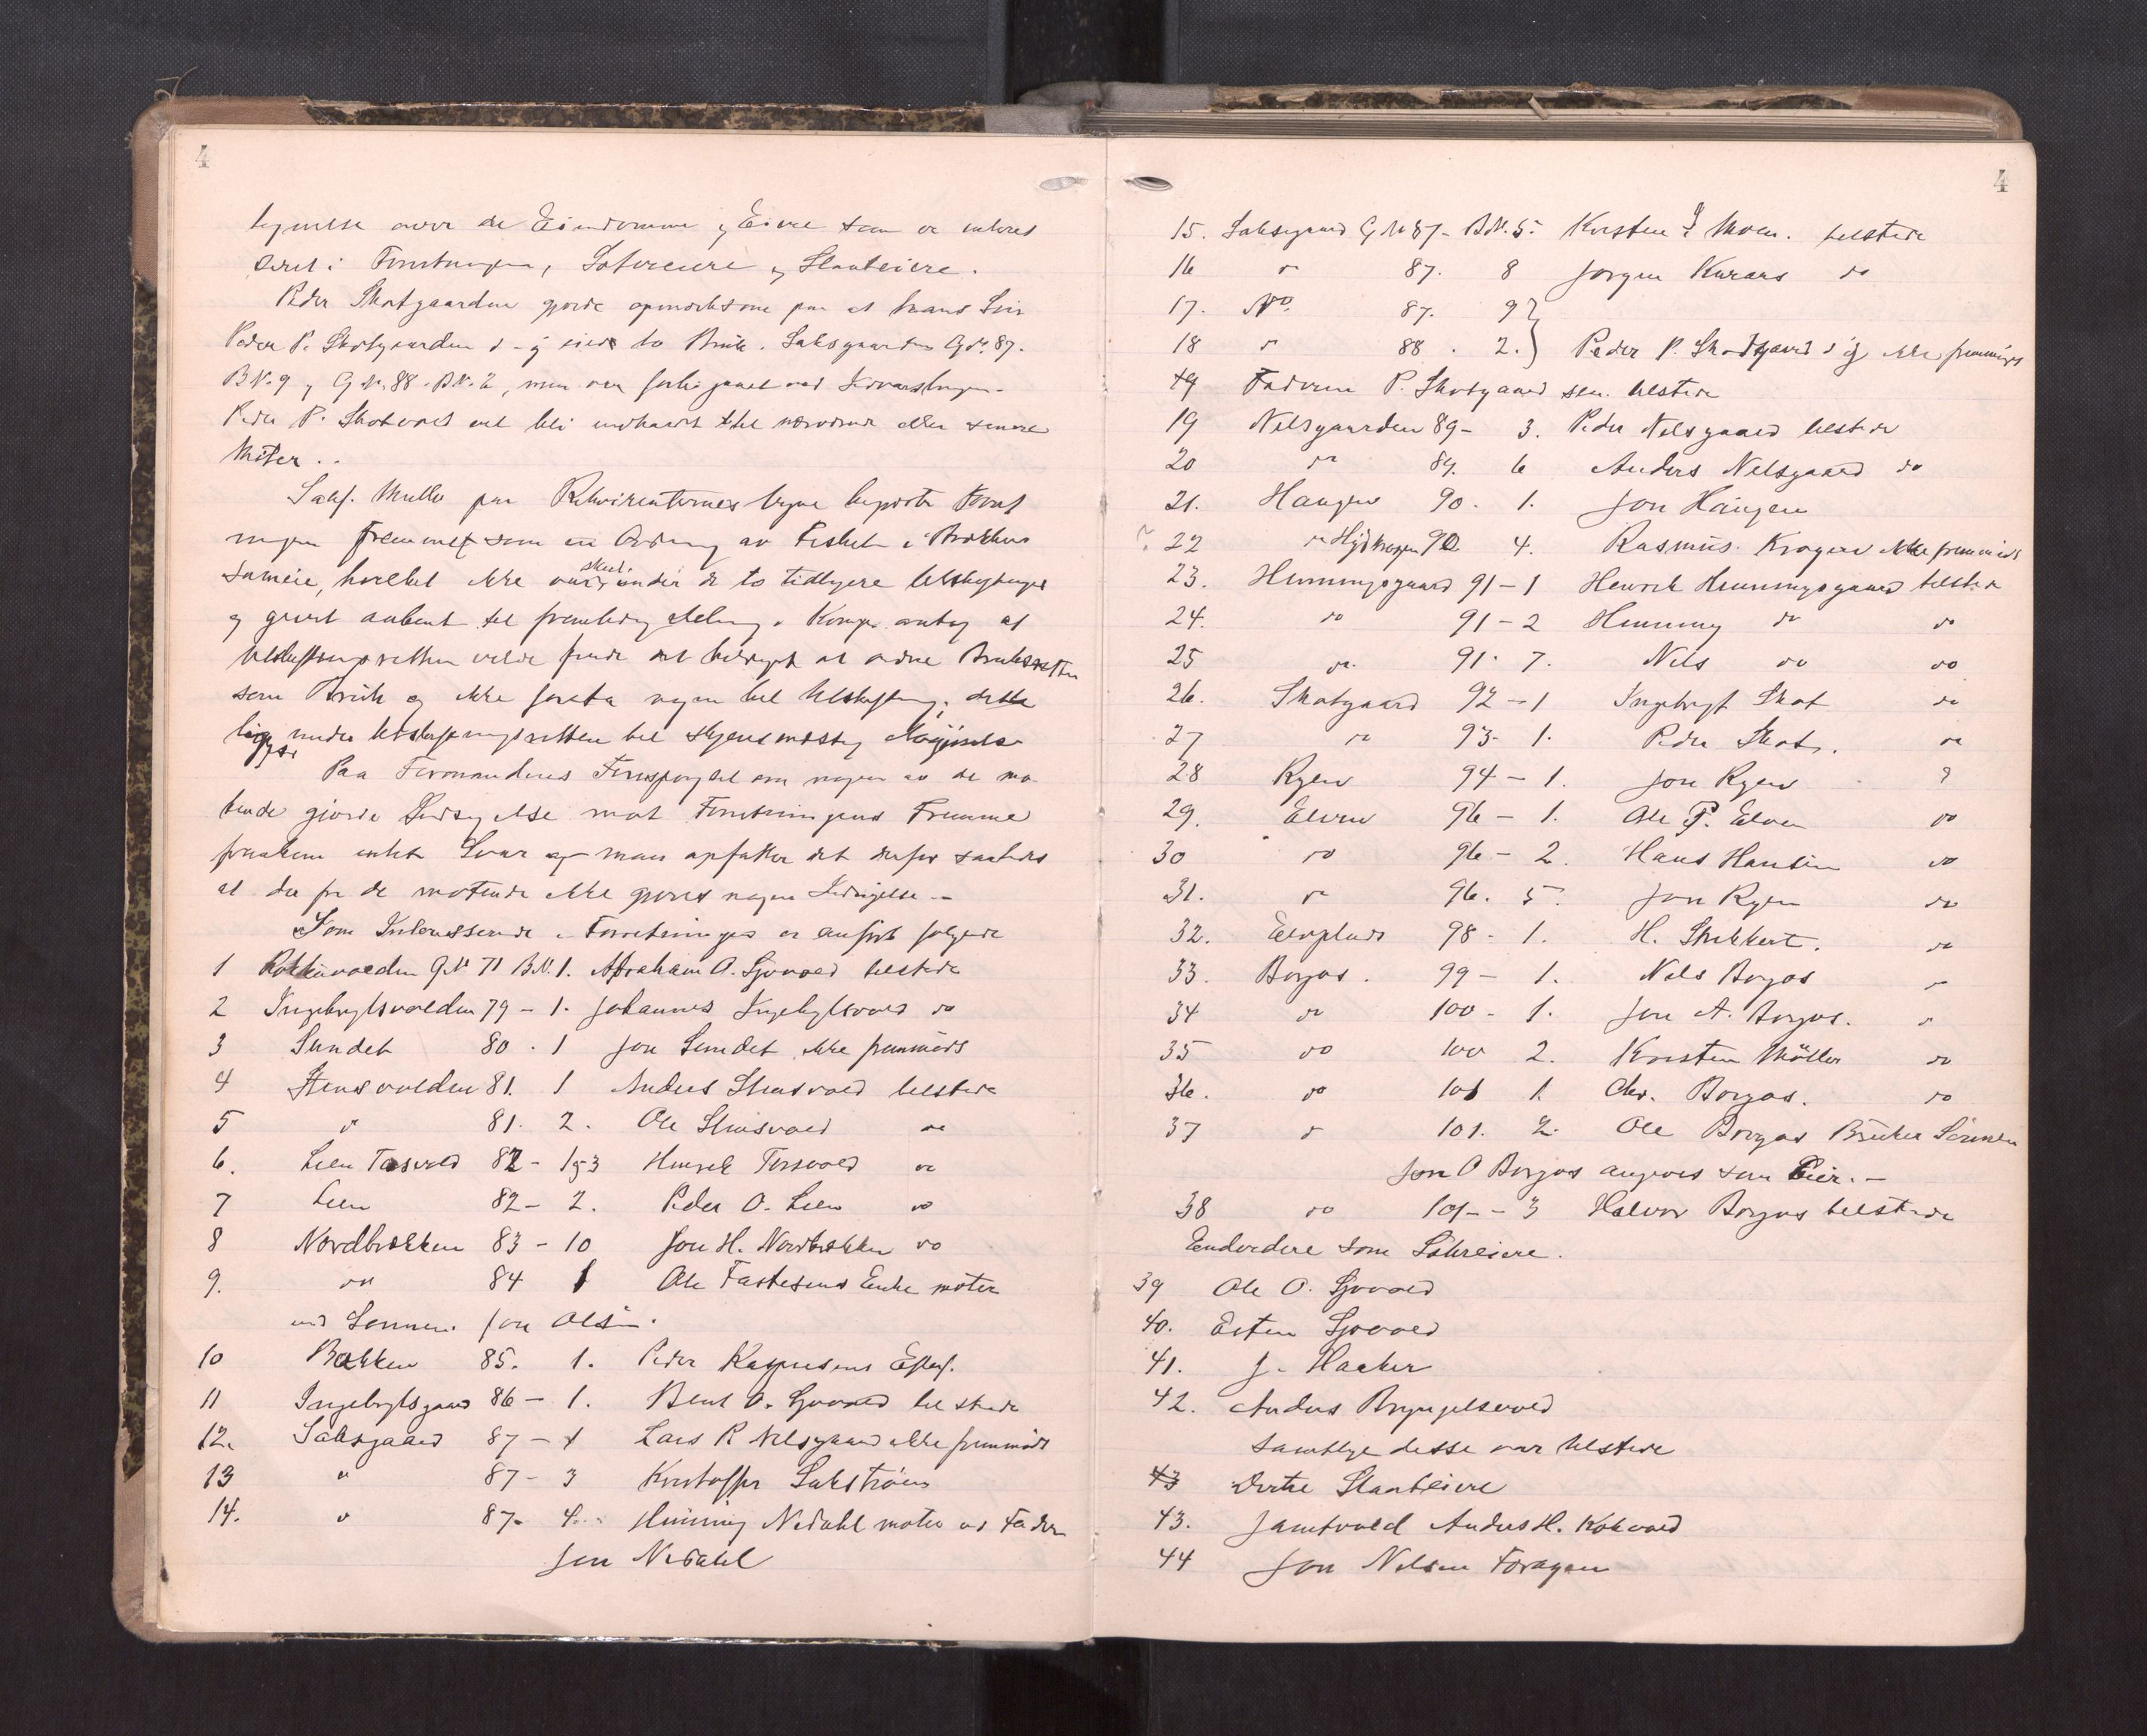 4
tegnelse over de Eiendomme og Eiere som er interes
seret i Forretningen, Sætereiere og Slaateiere.
Peder Skotgaarden gjorde opmerksom paa at hans Søn
Peder P. Skotgaarden d. y. eier to Bruk. Saksgaarden G.Nr. 87.
B.N. 9 og G.N. 88. B.N. 2, men var forbigaaet ved Indvarslingen.
Peder P. Skot vil bli indkaldt til nærværende eller senere
Møter..
Sakf. Møller paa Rekvirenternes Vegne begjærte Forret
ningen fremmet som en Ordning av Fisket i Brekken
Sameie, hvilket ikke var skeet under de to tidligere Utskiftninger
og givet aabent til fremtidig deling. Komp. antog at
Utskiftningsretten vilde finde det betryg. at ordne Bruksretten
som Bruk og ikke foreta nogen hel Utskiftning; dette
ligger under Utskiftningsretten til skjønsmæssig Avgjørelse
Paa Formandens Forespørgsel om nogen av de mø
tende gjorde Indsigelse mot Forretningens Fremme
fremkom intet Svar og man opfatter det derfor saaledes
at der fra de møtende ikke gjøres nogen Indsigelse. -
Som Interesserede i Forretningen er anført følgende
1 Rokkuvolden G.N. 71 B.N. 1. Abraham O. Sjovold tilstede
2 Ingebrigtsvolden 79 - 1. Johannes Ingebrigtsvold do
3 Sundet 80 . 1 Jon Sundet ikke fremmødt
4 Stensvolden 81. 1 Anders Stensvold tilstede
5 " 81. 2. Ole Stensvold do
6. Lien Tørsvold 82 - 1 og 3 Henrik Tørsvold do
7 Lien 82 - 2. Peder O. Lien do
8 Nordbrekken 83 - 10 Jon H. Nordbrekken do
9. do 84 1 Ole Fastesens Enke møter
ved Sønnen Jon Olsen.
10 Bakken 85. 1. Peder Kaspersens Efterf.
11 Ingebrigtsgaard 86 - 1. Bent O. Sjovold tilstede
12. Saksgaard 87 - 1 Lars R Nilsgaard ikke fremmødt
13 " 87 - 3 Kristoffer Sakstrøen
14. " 87. 4. Henning Nedahl møter ved Faderen
Jon Nedahl
4
15. Saksgaard G.N 87 - B.N. 5. Kristen J. Moen. tilstede
16 do 87. 8 Jørgen Kuraas do
17. do. 87. 9
18 do 88 . 2. Peder P. Skodtgaard d y ikke fremmødt
19 Faderen P. Skotgaard sen. tilstede
19 Nilsgaarden 89 - 3. Peder Nilsgaard tilstede
20 do 89. 6 Anders Nilsgaard do
21. Haugen 90 . 1. Jon Haugen
? 22 do 90 4. Rasmus Krogen ikke fremmødt
23. Henningsgaard 91 - 1 Henrik Henningsgaard tilstede
24. do 91 - 2 Henning do do
25 do. 91 - 7. Nils do do
26. Skotgaard 92 - 1 Ingebrigt Skot do
27 do 93 - 1. Peder Skot. do
28 Ryen 94 - 1. Jon Ryen ?
29. Elven 96 - 1. Ole P. Elven do
30 do 96 - 2. Hans Hansen do
31. do 96. 5. Jon Ryen do
32. Elvplads 98 - 1. H. Strickert. do
33. Borgos. 99 - 1. Nils Borgos do
34 do 100 - 1. Jon A. Borgos. do
35 do 100 2. Kristen Møller do
36. do 101 1. Chr. Borgos. do
37 do 101. 2. Ole Borgos Bruker Sønnen
Jon O Borgos angives som Eier. -
38 do 101 - 3 Halvor Borgos tilstede
Endvidere som Sætereiere.
39 Ole O. Sjovold
40. Esten Sjovold
41. J. Hacker
42. Anders Bryngelsvold
samtlige disse var tilstede
43 Dertre Slaateiere
43. Jamtvold Anders H. Kokvold
44 Jon Nilsen Foragen